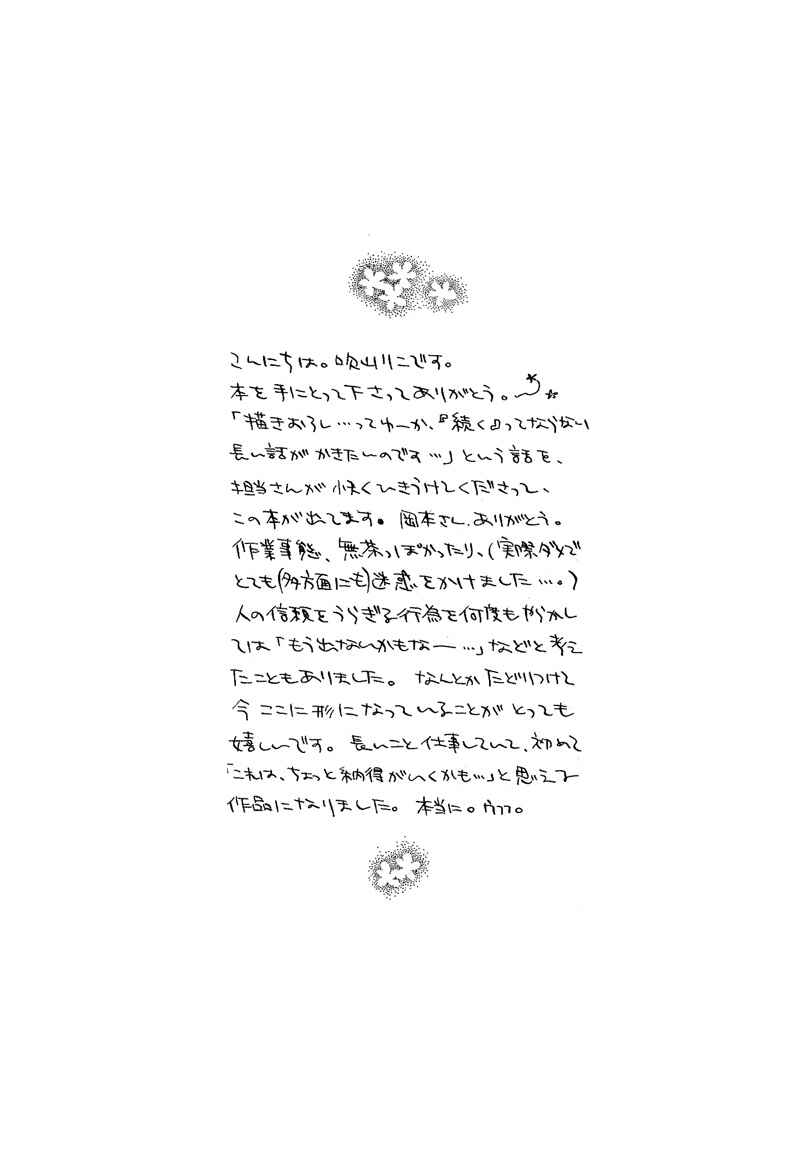 こんにちは。吹山りこです。
本を手にとって下さってありがとう。
「描きおろし…ってゆーか、『続く』ってならない
長い話がかきたいのです…」という話を、
担当さんが快くひきうけてくださって、
この本が出てます。岡本さん、ありがとう。
作業事態、無茶っぽかったり、(実際ダメで
とても(多方面にも)迷惑をかけました…。)
人の信頼をうらぎる行為を何度もやらかし
ては「もう出ないかもなー…」などと考え
たこともありました。なんとかたどりつけて
今ここに形になっていることがとっても
嬉しいです。長いこと仕事していて、初めて
「これは、ちょっと納得がいくかも…」と思える
作品になりました。本当に。ウフフ。